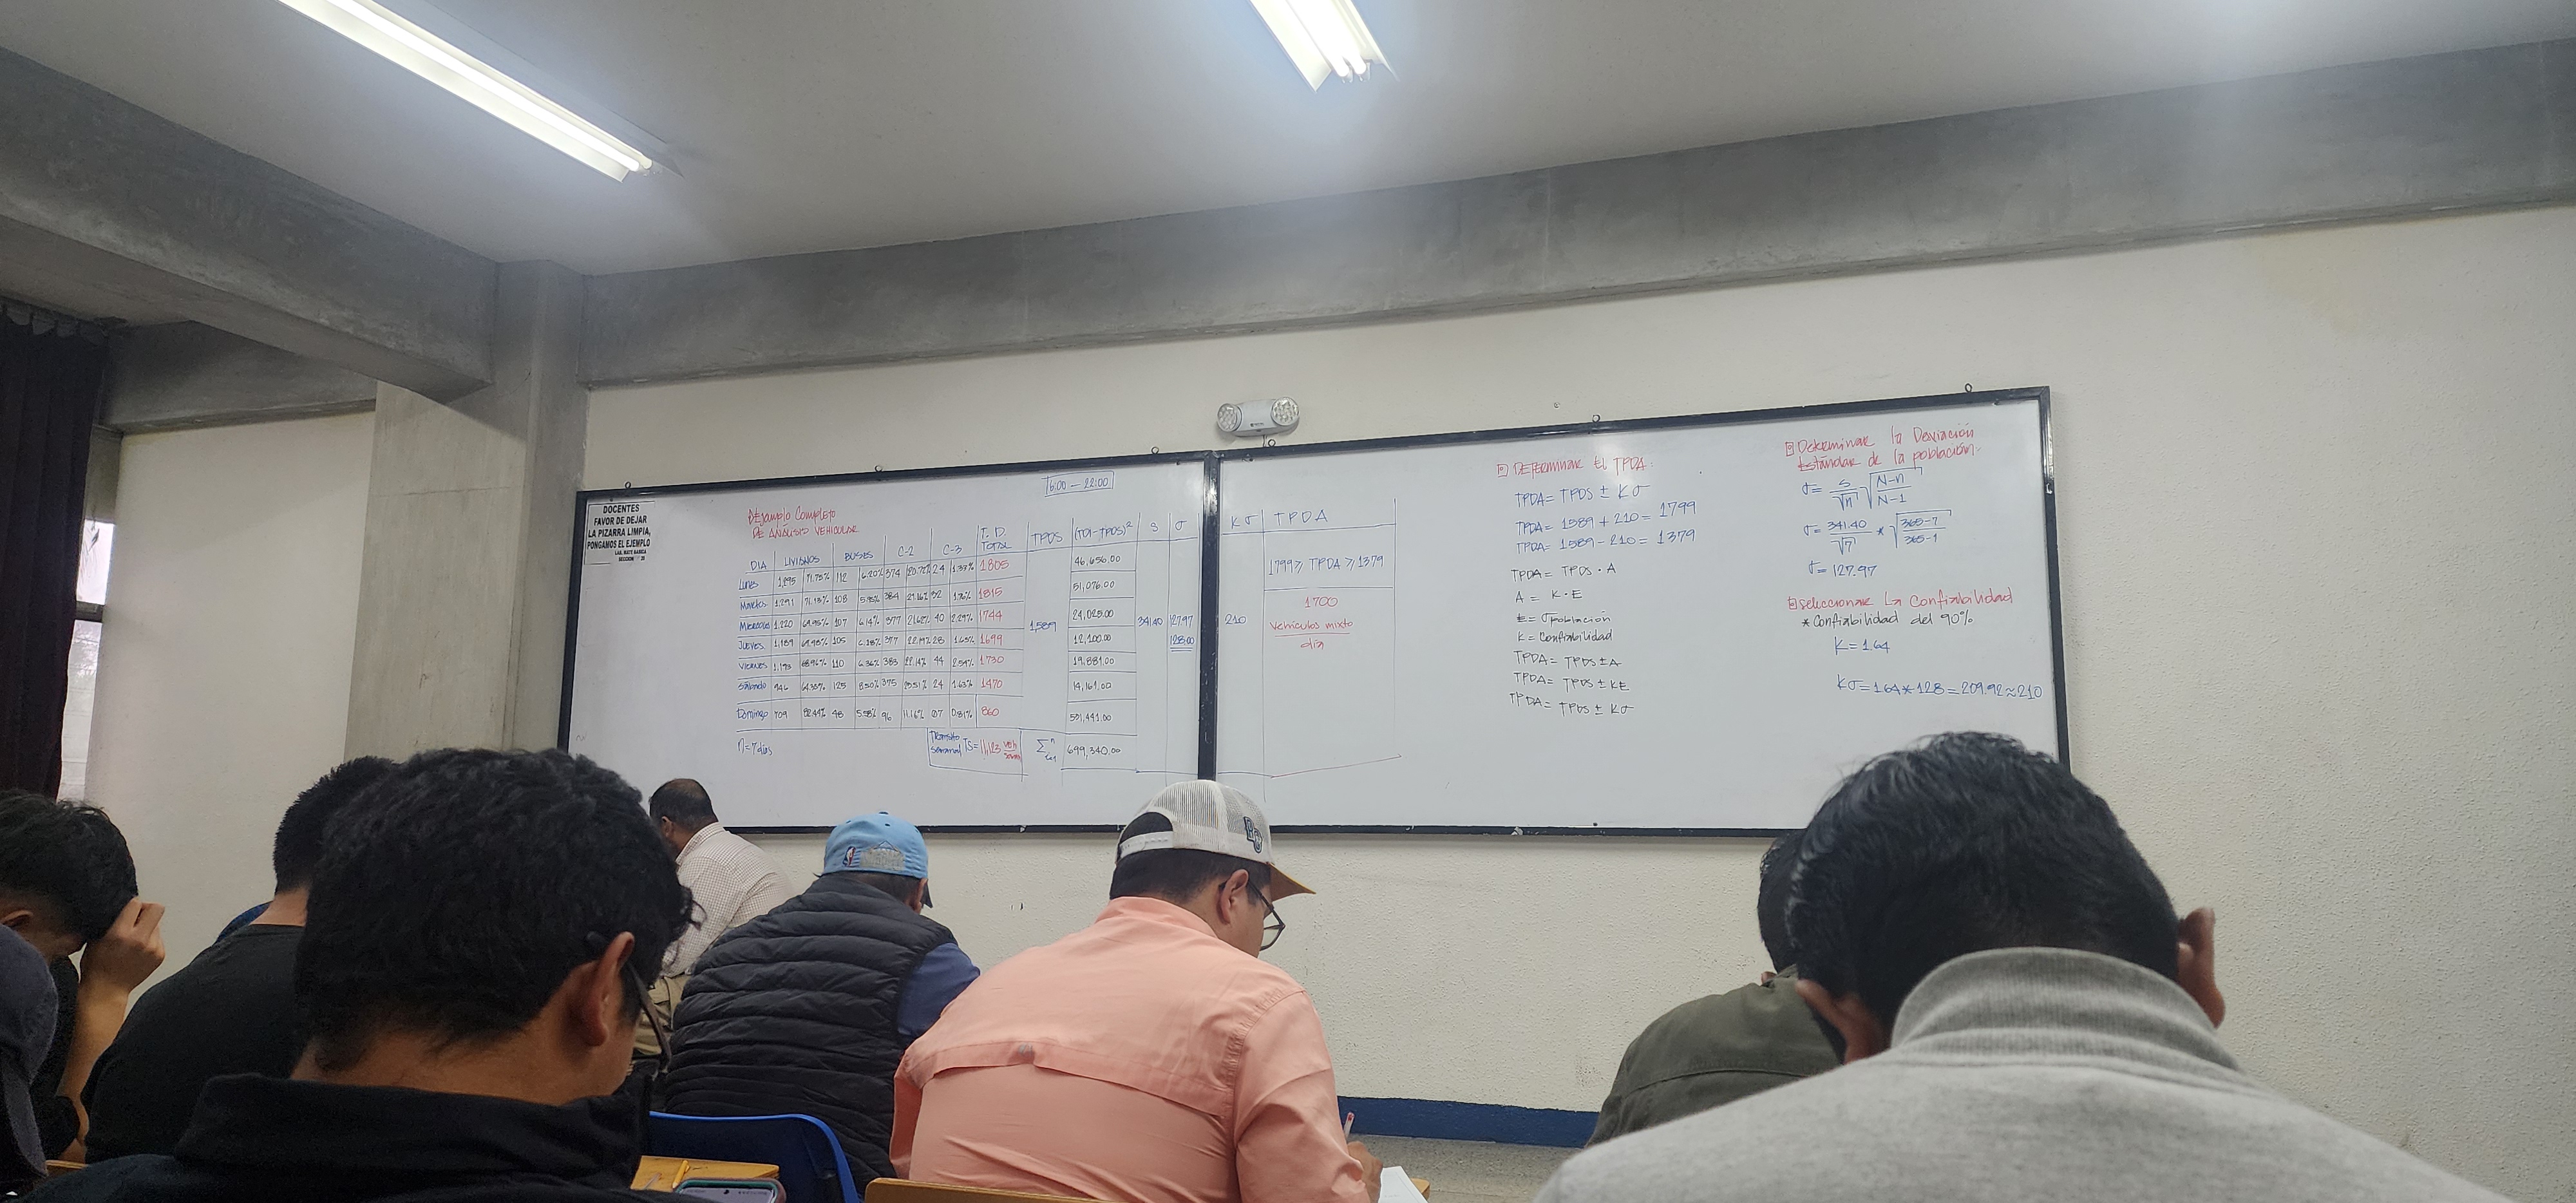 DOCENTES
FAVOR DE DEJAR
LA PIZARRA LIMPIA,
PONGAMOS EL EJEMPLO
Ejemplo Completo
DE ANÁLISIS VEHICULAR
6:00 — 22:00
DIA LIVIANOS BUSES C-2 C-3 T.D. TOTAL TPDS (TDi-TPDS)² S σ
Lunes 1,295 71.75% 112 6.20% 374 20.72% 24 1.33% 1805 46,656.00
Martes 1,291 71.13% 108 5.95% 384 21.16% 32 1.76% 1815 51,076.00
Miercoles 1,220 69.95% 107 6.14% 377 21.62% 40 2.29% 1744 24,025.00
1,589 341.40 127.97
128.00
Jueves 1,189 69.98% 105 6.18% 377 22.19% 28 1.65% 1699 12,100.00
Viernes 1,193 68.96% 110 6.36% 383 22.14% 44 2.54% 1730 19,881.00
Sábado 946 64.35% 125 8.50% 375 25.51% 24 1.63% 1470 14,161.00
Domingo 709 82.44% 48 5.58% 96 11.16% 07 0.81% 860 531,441.00
n = 7 días
Transito
semanal TS = 11,123 veh/sem
Σ n i=1 699,340.00
Kσ TPDA
1799 ≥ TPDA ≥ 1379
210
1700
vehículos mixto
día
DETERMINAR EL TPDA:
TPDA = TPDS ± Kσ
TPDA = 1589 + 210 = 1799
TPDA = 1589 - 210 = 1379
TPDA = TPDS · A
A = K · E
E = σ población
K = Confiabilidad
TPDA = TPDS ± A
TPDA = TPDS ± KE
TPDA = TPDS ± Kσ
Determinar la Deviación
Estándar de la población.
σ = S/√n √(N-n/N-1)
σ = 341.40/√7 * √(365-7/365-1)
σ = 127.97
Seleccionar La Confiabilidad
* Confiabilidad del 90%
K = 1.64
Kσ = 1.64 * 128 = 209.92 ≈ 210